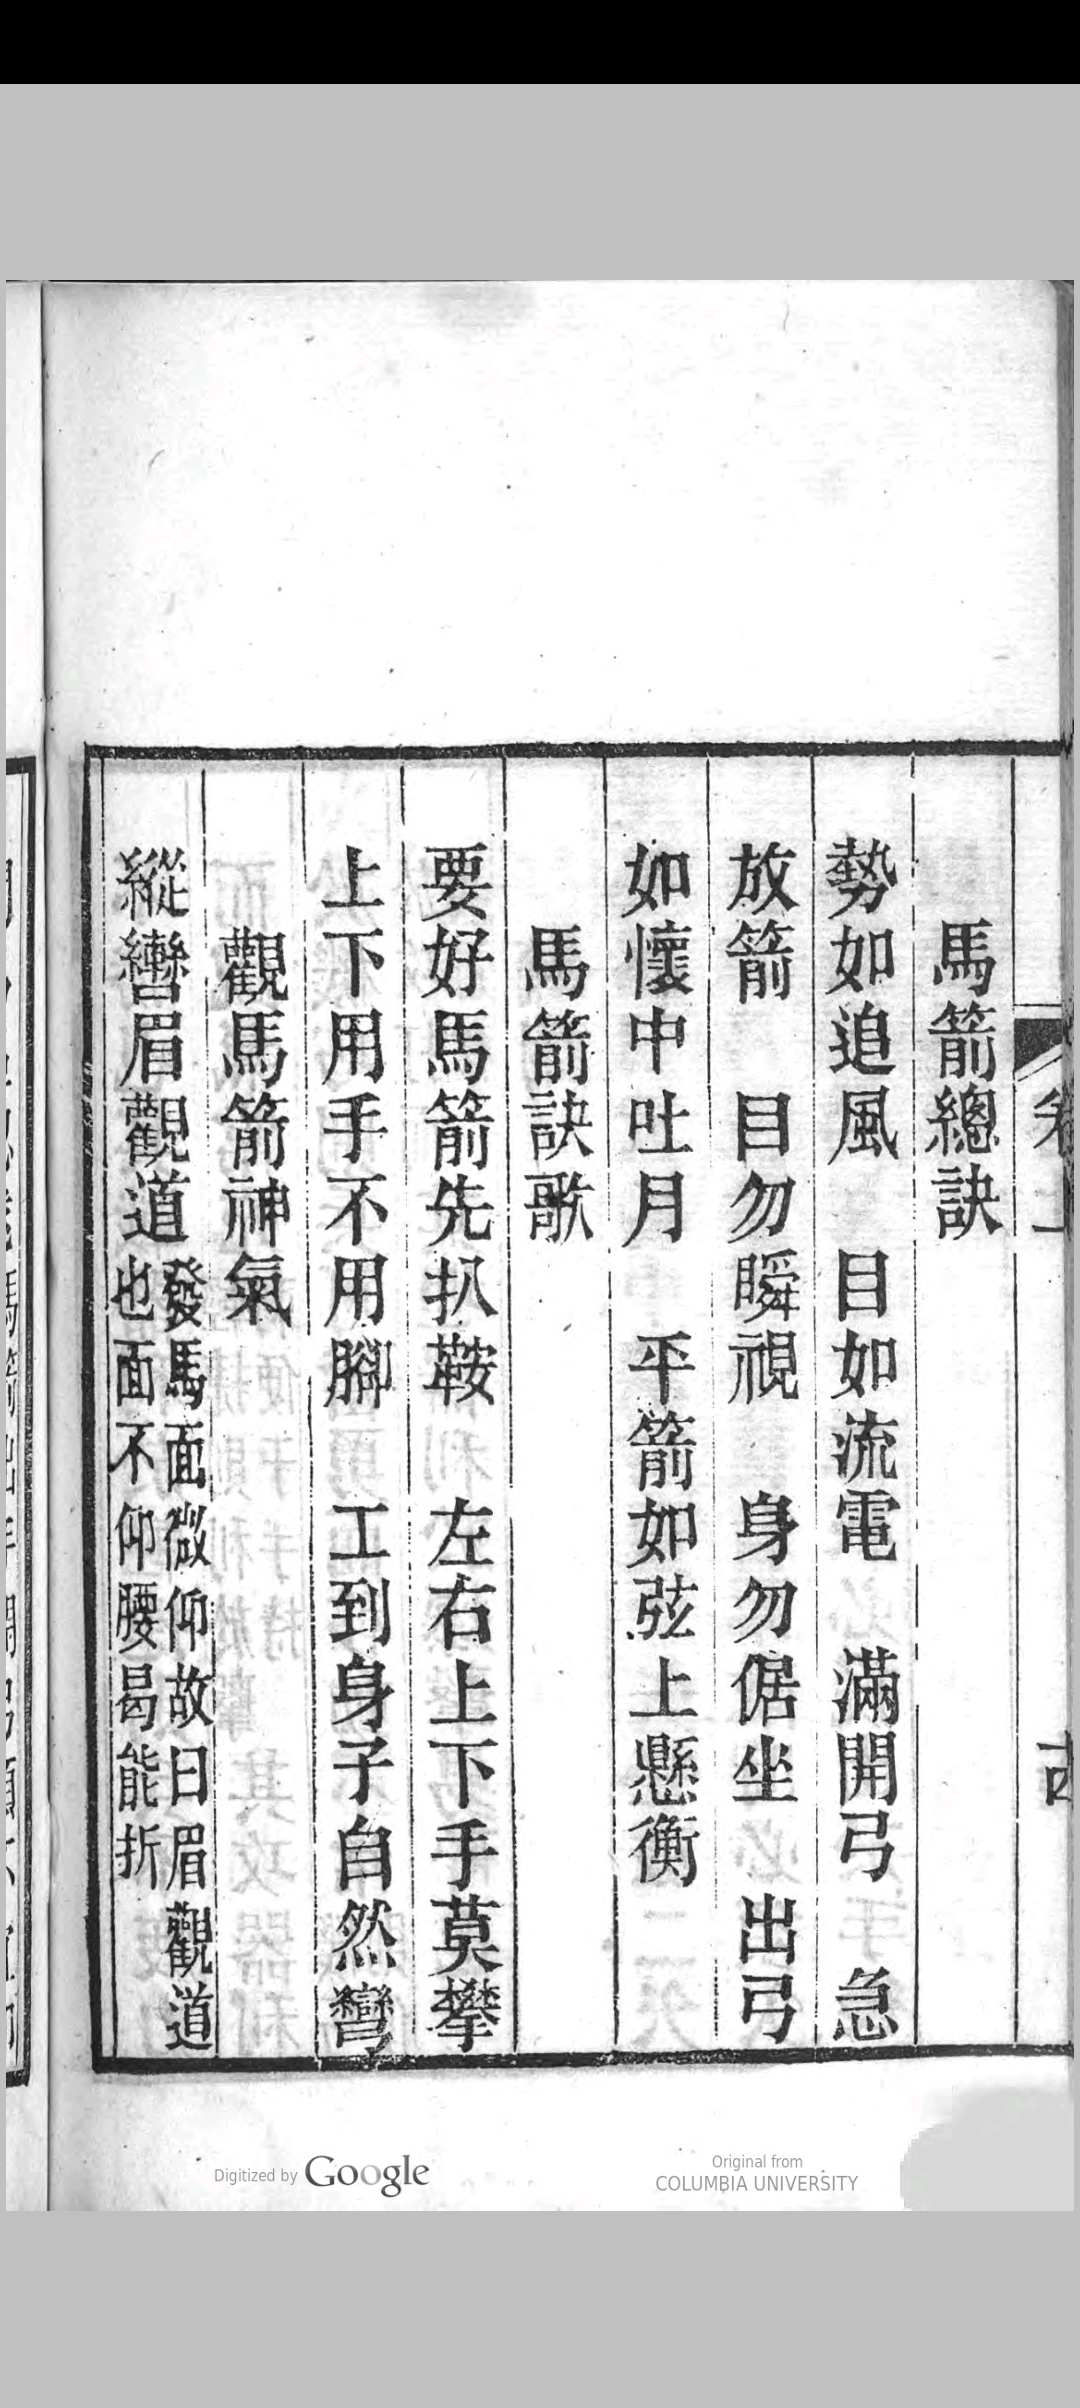 馬箭總訣
勢如追風　目如流電　滿開弓　急
放箭　目勿瞬視　身勿倨坐　出弓
如懷中吐月　平箭如弦上懸衡
馬箭訣歌
要好馬箭先扒鞍　左右上下手莫攀
上下用手不用腳　工到身子自然彎
觀馬箭神氣
縱轡眉觀道
發馬面微仰故曰眉觀道
也面不仰腰曷能折
Digitized by Google
Original from
COLUMBIA UNIVERSITY